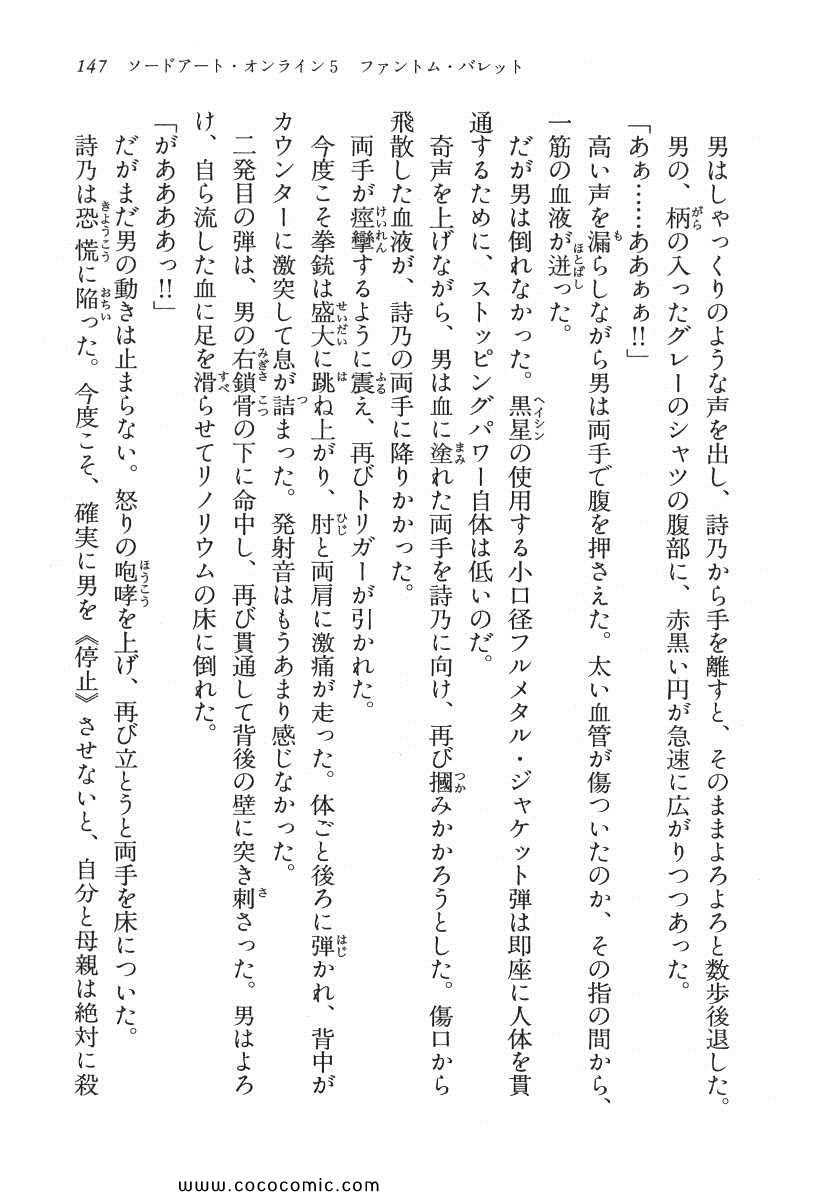 147　ソードアート・オンライン5　ファントム・バレット
　男はしゃっくりのような声を出し、詩乃から手を離すと、そのままよろよろと数歩後退した。
　男の、柄の入ったグレーのシャツの腹部に、赤黒い円が急速に広がりつつあった。
「あぁ……あああぁぁ!!」
　高い声を漏らしながら男は両手で腹を押さえた。太い血管が傷ついたのか、その指の間から、
一筋の血液が迸った。
　だが男は倒れなかった。黒星の使用する小口径フルメタル・ジャケット弾は即座に人体を貫
通するために、ストッピングパワー自体は低いのだ。
　奇声を上げながら、男は血に塗れた両手を詩乃に向け、再び摑みかかろうとした。傷口から
飛散した血液が、詩乃の両手に降りかかった。
　両手が痙攣するように震え、再びトリガーが引かれた。
　今度こそ拳銃は盛大に跳ね上がり、肘と両肩に激痛が走った。体ごと後ろに弾かれ、背中が
カウンターに激突して息が詰まった。発射音はもうあまり感じなかった。
　二発目の弾は、男の右鎖骨の下に命中し、再び貫通して背後の壁に突き刺さった。男はよろ
け、自ら流した血に足を滑らせてリノリウムの床に倒れた。
「があああぁっ!!」
　だがまだ男の動きは止まらない。怒りの咆哮を上げ、再び立とうと両手を床についた。
　詩乃は恐慌に陥った。今度こそ、確実に男を《停止》させないと、自分と母親は絶対に殺
www.cococomic.com